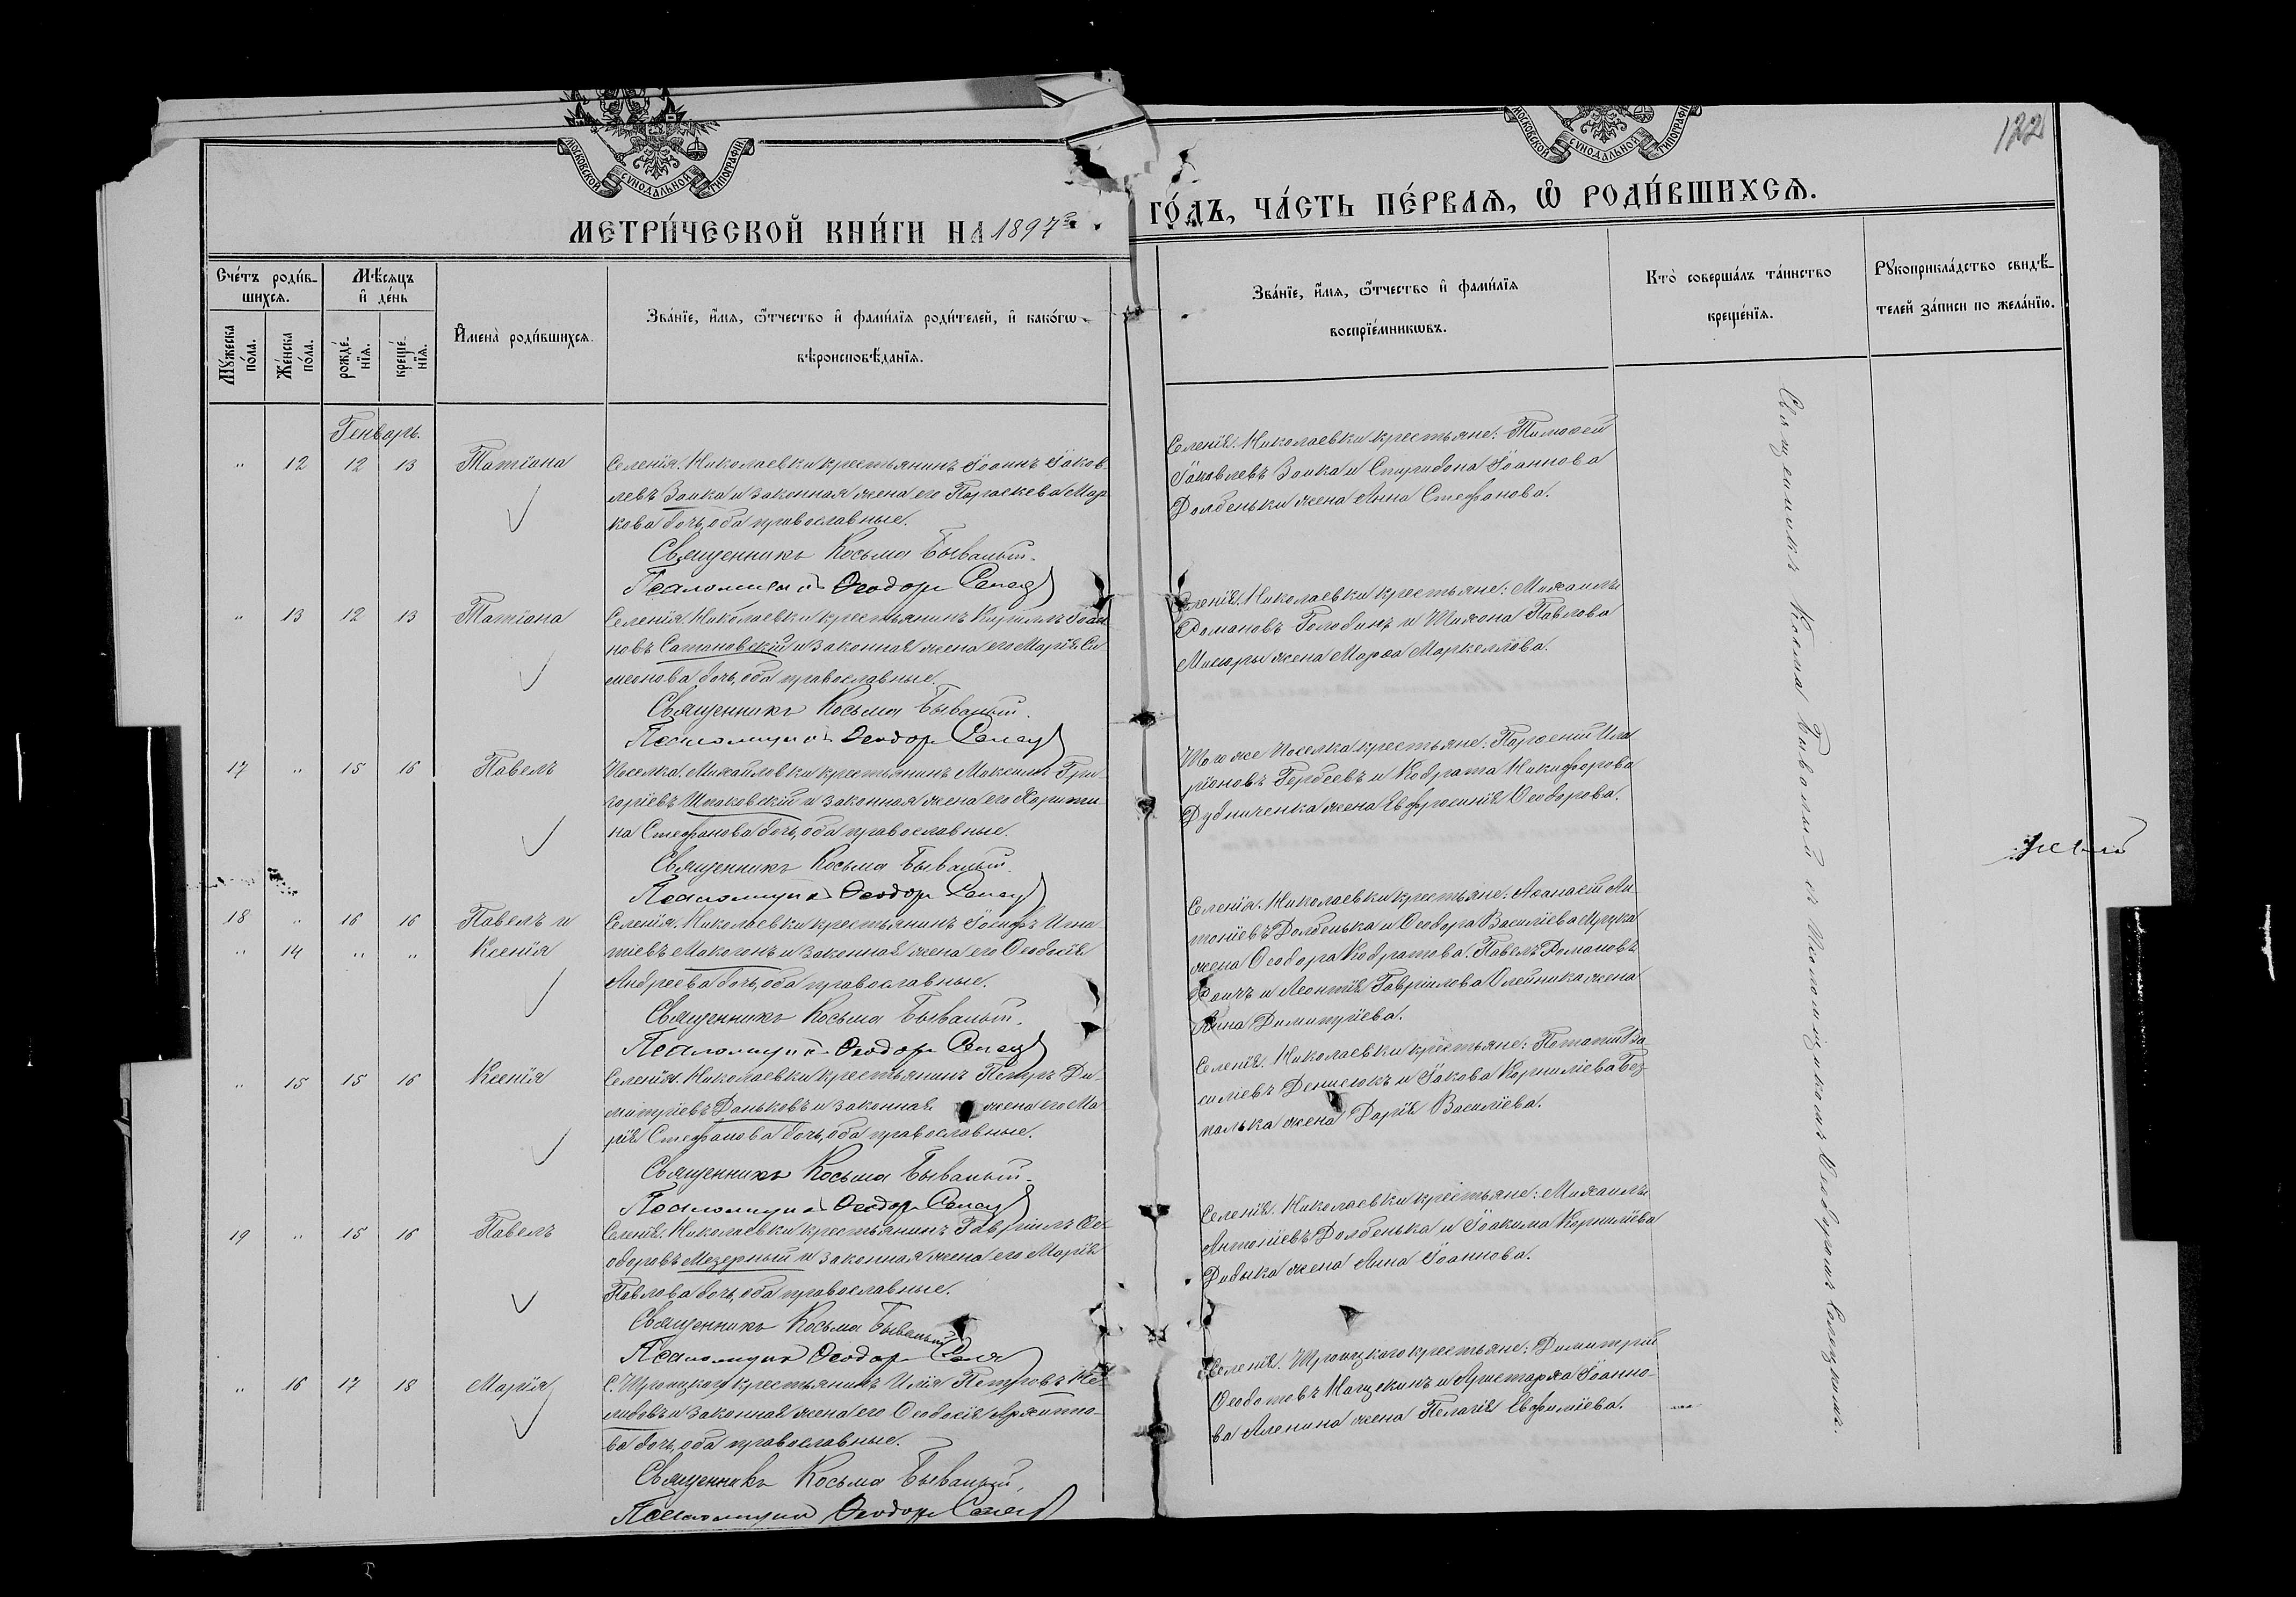 МОСКОВСКОЙ СѴНОДАЛЬНОЙ ТИПОГРАФІИ
МОСКОВСКОЙ СѴНОДАЛЬНОЙ ТИПОГРАФІИ
122
МЕТРИ́ЧЕСКОЙ КНИ́ГИ НА 1897й
ГО́ДЪ, ЧА́СТЬ ПЕ́РВАѦ, Ѽ РОДИ́ВШИХСѦ.
Сче́тъ роди́в-
шихсѧ.
Мꙋ́жеска по́ла.
Же́нска по́ла.
Мѣ́сѧцъ
и҆ де́нь
рожде́-
нїѧ.
креще́-
нїѧ.
И҆мена̀ роди́вшихсѧ.
Зва́нїе, и҆́мѧ, ѻ҆́тчество и҆ фами́лїѧ роди́телей, и҆ како́гѡ
вѣроисповѣ́данїѧ.
Зва́нїе, и҆́мѧ, ѻ҆́тчество и҆ фами́лїѧ
воспрїе́мникѡвъ.
Кто̀ соверша́лъ та́инство
креще́нїѧ.
Рꙋкоприкла́дство свидѣ́-
телей за́писи по жела́нїю.
Генварь.
" 12 12 13 Татіана
Селенія Николаевки крестьянинъ Іоаннъ Іаков-
левъ Заика и законная жена его Параскева Мар-
кова дочь, оба православные.
Священникъ Косьма Бывалый.
Псаломщикъ Ѳеодоръ
Селенія Николаевки крестьяне: Тимоѳей
Іаковлевъ Заика и Спиридона Іоаннова
Долбеньки жена Анна Стефанова.
" 13 12 13 Татіана
Селенія Николаевки крестьянинъ Кириллъ Іоан-
новъ Сатановскій и законная жена его Марія Си-
меонова дочь, оба православные.
Священникъ Косьма Бывалый.
Псаломщикъ Ѳеодоръ
Селенія Николаевки крестьяне: Михаилъ
Романовъ Голобинъ и Тихона Павлова
Мисюры жена Марѳа Маркеллова.
17 " 15 16 Павелъ
Поселка Михайловки крестьянинъ Максимъ Гри-
горіевъ и законная жена его Харити-
на Стефанова дочь, оба православные.
Священникъ Косьма Бывалый.
Псаломщикъ Ѳеодоръ
Того же поселка крестьяне: Парѳеній Ила-
ріоновъ и Кодрата Никифорова
Дудниченка жена Евфросинія Ѳеодорова.
18 " 16 16 Павелъ и
" 14 " " Ксенія
Селенія Николаевки крестьянинъ Іосифъ Игна-
тіевъ Макогонъ и законная жена его Ѳеодосія
Андреева дочь, оба православные.
Священникъ Косьма Бывалый.
Псаломщикъ Ѳеодоръ
Селенія Николаевки крестьяне: Аѳанасій Ан-
тоніевъ Долбенька и Ѳеодора Василіева
жена Ѳеодора Кодратова. Павелъ Романовъ
и Леонтія Гавріилова Олейника жена
Анна Димитріева.
" 15 15 16 Ксенія
Селенія Николаевки крестьянинъ Петръ Ди-
митріевъ Даньковъ и законная жена его Ма-
рія Стефанова дочь, оба православные.
Священникъ Косьма Бывалый.
Псаломщикъ Ѳеодоръ
Селенія Николаевки крестьяне: Потапій Ва-
силіевъ Денисюкъ и Іакова Корниліева Без-
палька жена Дарія Василіева.
19 " 15 16 Павелъ
Селенія Николаевки крестьянинъ Гавріилъ Ѳе-
одоровъ Мезерный и законная жена его Марія
Павлова дочь, оба православные.
Священникъ Косьма Бывалый
Псаломщикъ Ѳеодоръ
Селенія Николаевки крестьяне: Михаилъ
Антоніевъ Долбенька и Іоакима Корниліева
Дидыка жена Анна Іоаннова.
" 16 17 18 Марія
С. Троицкаго крестьянинъ Илія Петровъ
и законная жена его Ѳеодосія Архиппо-
ва дочь, оба православные.
Священникъ Косьма Бывалый.
Псаломщикъ Ѳеодоръ
Селенія Троицкаго крестьяне: Димитрій
Ѳеодотовъ Нащекинъ и Аристарха Іоанно-
ва Аленина жена Пелагія Евфиміева.
Священникъ Косьма Бывалый съ псаломщикомъ Ѳеодоромъ